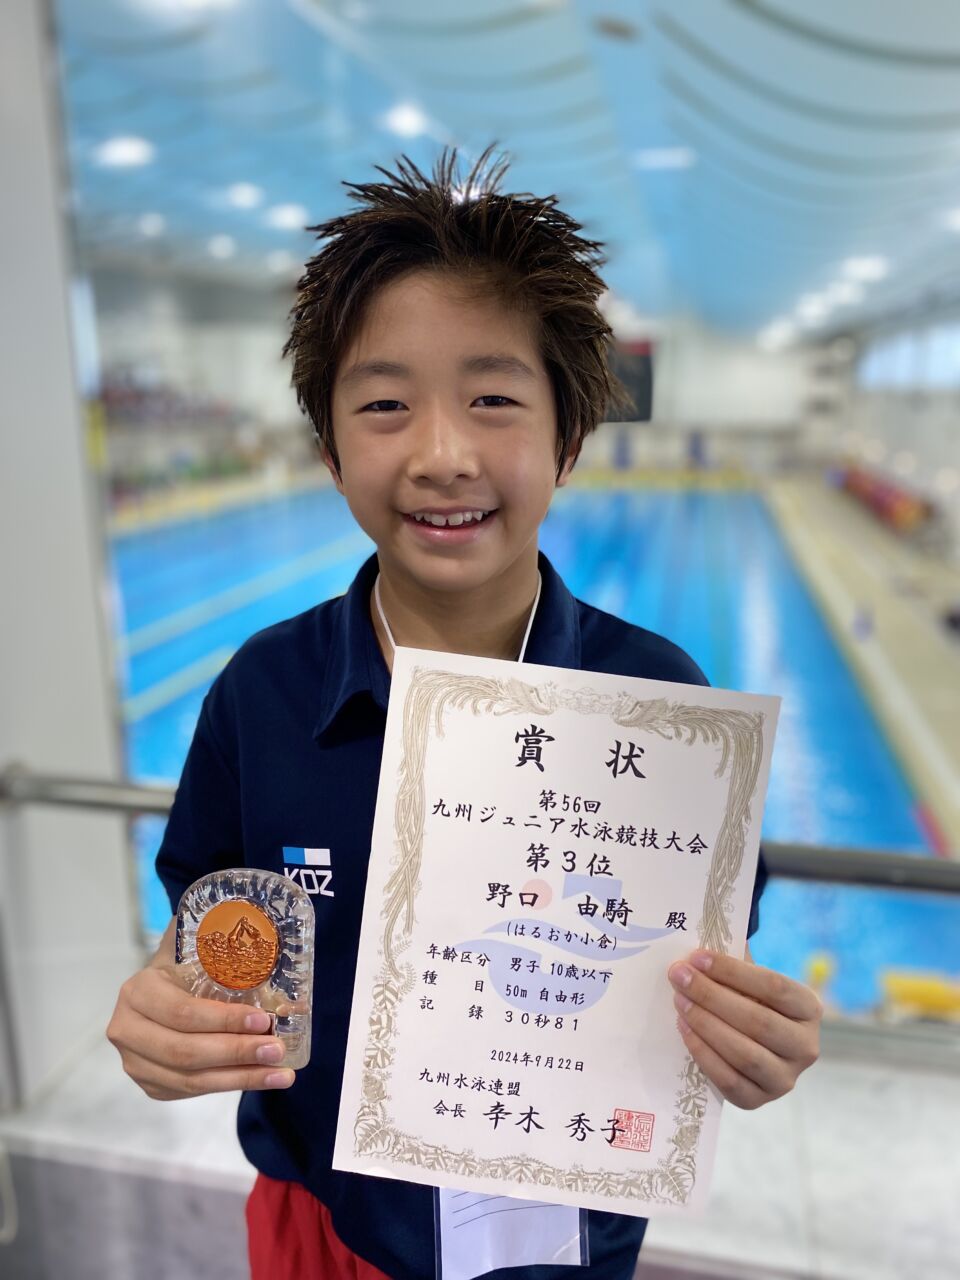 賞 状
第56回
九州ジュニア水泳競技大会
第3位
野口 由騎 殿
(はるおか小倉)
年齢区分 男子 10歳以下
種目 50m 自由形
記録 30秒81
2024年9月22日
九州水泳連盟
会長 幸木 秀子
KOZ